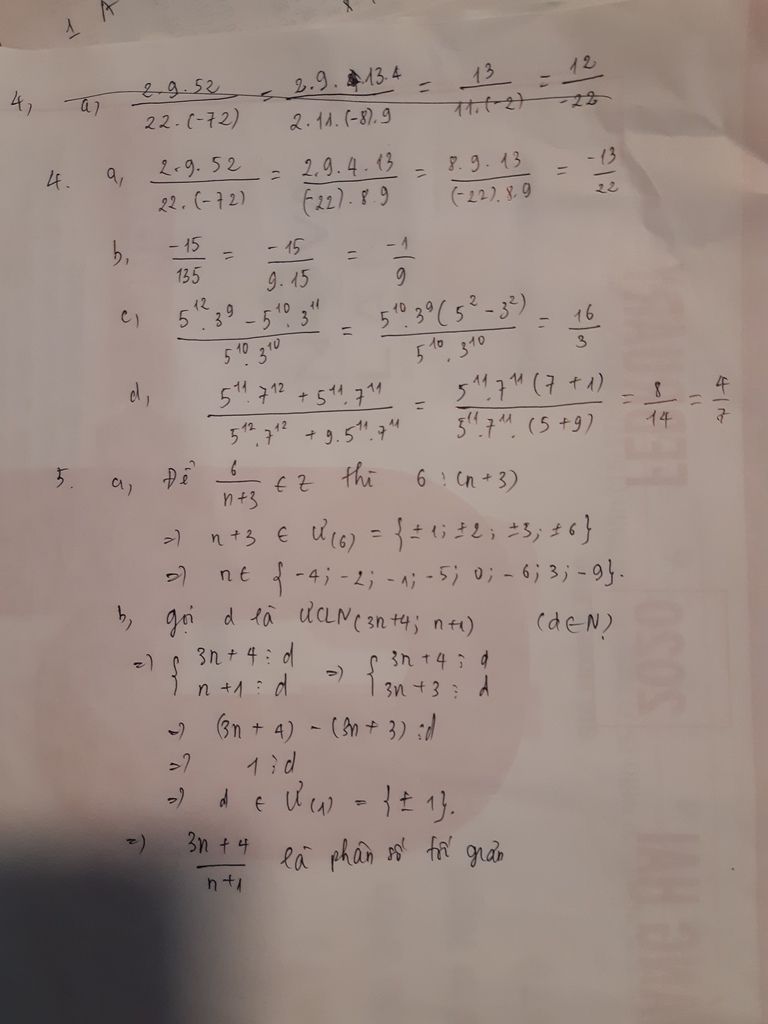 1 A
4, a, 2.9.52 / 22.(-72) = 2.9.13.4 / 2.11.(-8).9 = 13 / 11.(-2) = 12 / -22
4. a, 2.9.52 / 22.(-72) = 2.9.4.13 / (-22).8.9 = 8.9.13 / (-22).8.9 = -13 / 22
b, -15 / 135 = -15 / 9.15 = -1 / 9
c, 5^12.3^9 - 5^10.3^11 / 5^10.3^10 = 5^10.3^9(5^2 - 3^2) / 5^10.3^10 = 16 / 3
d, 5^11.7^12 + 5^11.7^11 / 5^12.7^12 + 9.5^11.7^11 = 5^11.7^11(7 + 1) / 5^11.7^11.(5+9) = 8 / 14 = 4 / 7
5. a, Để 6 / n+3 ∈ Z thì 6 ⋮ (n+3)
=> n+3 ∈ Ư(6) = {±1; ±2; ±3; ±6}
=> n∈ {-4; -2; -1; -5; 0; -6; 3; -9}.
b, gọi d là ƯCLN(3n+4; n+1) (d∈N)
=> { 3n+4 ⋮ d => { 3n+4 ⋮ d
n+1 ⋮ d 3n+3 ⋮ d
=> (3n+4) - (3n+3) ⋮ d
=> 1 ⋮ d
=> d ∈ Ư(1) = {±1}.
=> 3n+4 / n+1 là phân số tối giản
FEBRUARY
2020